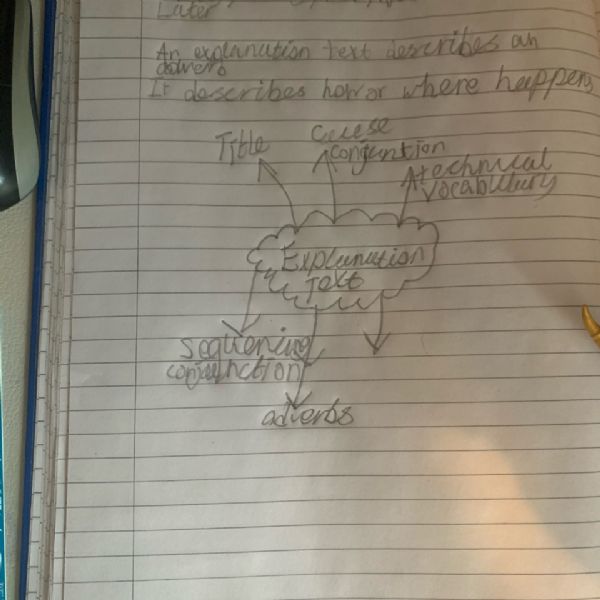 Later
An explanation text describes an
adverb
It describes how or where happens
Title
Cause
conjuntion
technical
vocabulury
Explanation
Text
sequening
conjunction
adverbs